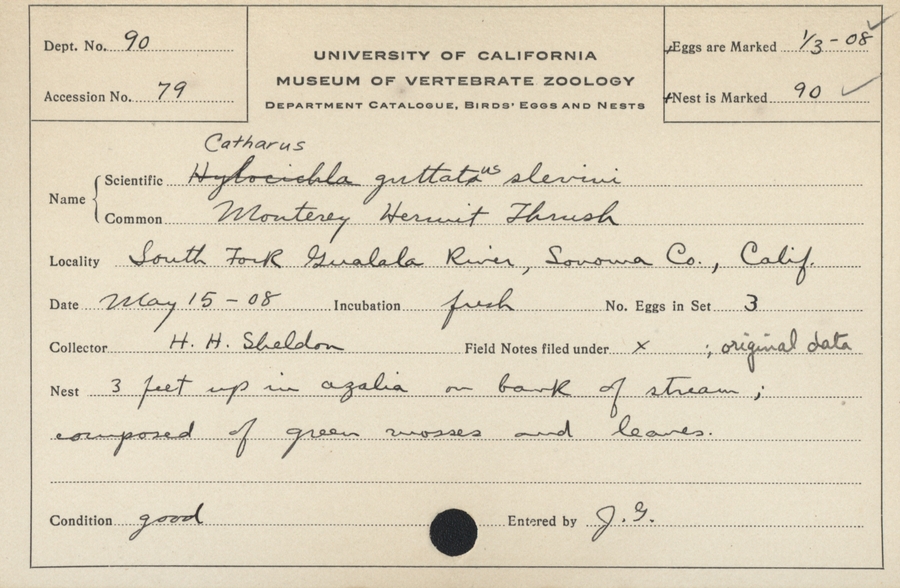 Dept. No. 90
Accession No. 79
UNIVERSITY OF CALIFORNIA
MUSEUM OF VERTEBRATE ZOOLOGY
DEPARTMENT CATALOGUE, BIRDS' EGGS AND NESTS
Eggs are Marked 1/3-08
Nest is Marked 90
Catharus
Name Scientific Hylocichla guttata us slevini
Common Monterey Hermit Thrush
Locality South Fork Gualala River, Sonoma Co., Calif.
Date May 15-08 Incubation fresh No. Eggs in Set 3
Collector H. H. Sheldon Field Notes filed under x ; original data
Nest 3 feet up in azalia on bank of stream;
composed of green mosses and leaves.
Condition good Entered by J.G.